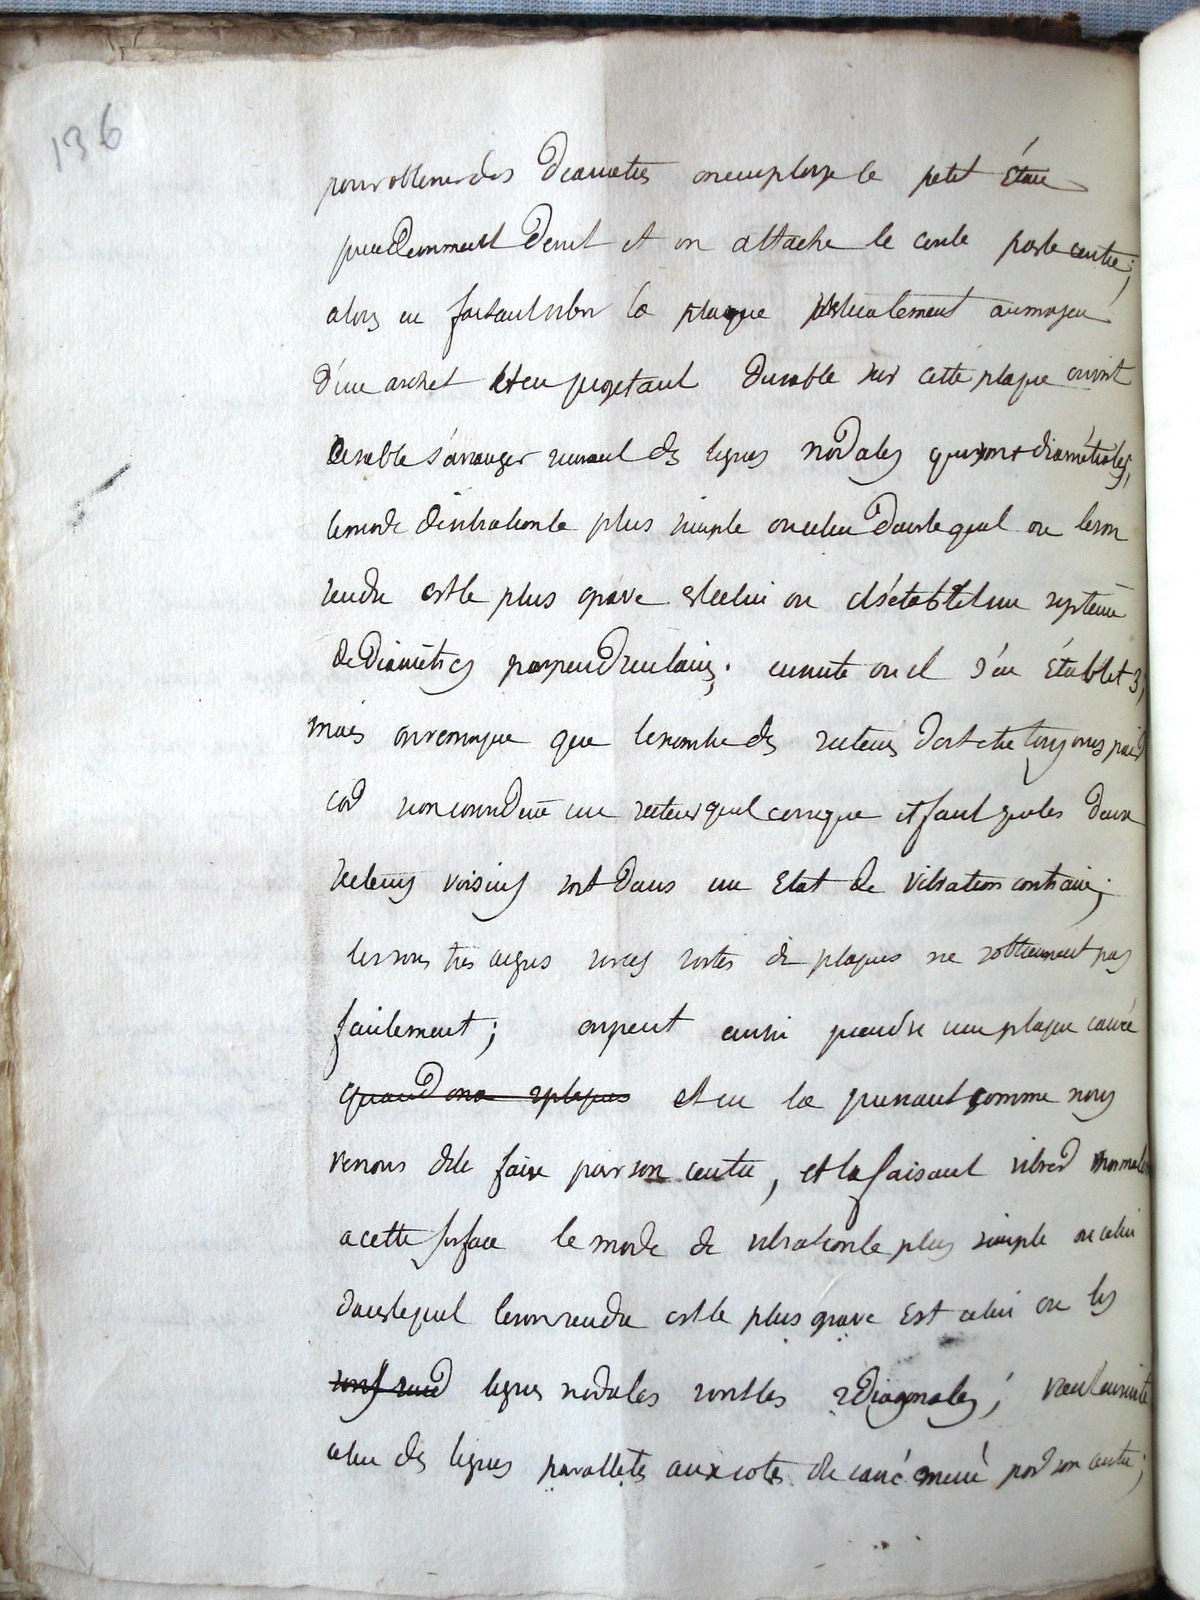 136
pour obtenir des diametres on employe le petit étau
precedemment decrit et on attache le cercle par le centre;
alors en faisant vibrer la plaque verticalement au moyen
d'un archet et en projetant du sable sur cette plaque on voit
le sable s'arranger suivant des lignes nodales qui sont diamétrales,
le mode de vibration le plus simple ou celui dans lequel ou le son
rendu est le plus grave est celui ou il s'établit un systeme
de diamètres perpendiculaires; ensuite on il s'en établit 3,
mais on remarque que le nombre des secteurs doit etre toujours pair
car si on considere un secteur quelconque il faut que les deux
secteurs voisins soit dans un Etat de vibration contraire;
les sons tres aigus sur ces sortes de plaques ne s'obtiennent pas
facilement; on peut aussi prendre une plaque carrée
quand on a plaques et en la prenant comme nous
venons de le faire par son centre, et la faisant vibrer normalem
a cette surface le mode de vibration le plus simple ou celui
dans lequel le son rendu est le plus grave Est celui ou les
lignes nodales sont les 2 diagonales; vient ensuite
celui des lignes paralleles aux cotés du carré mené par son centre;